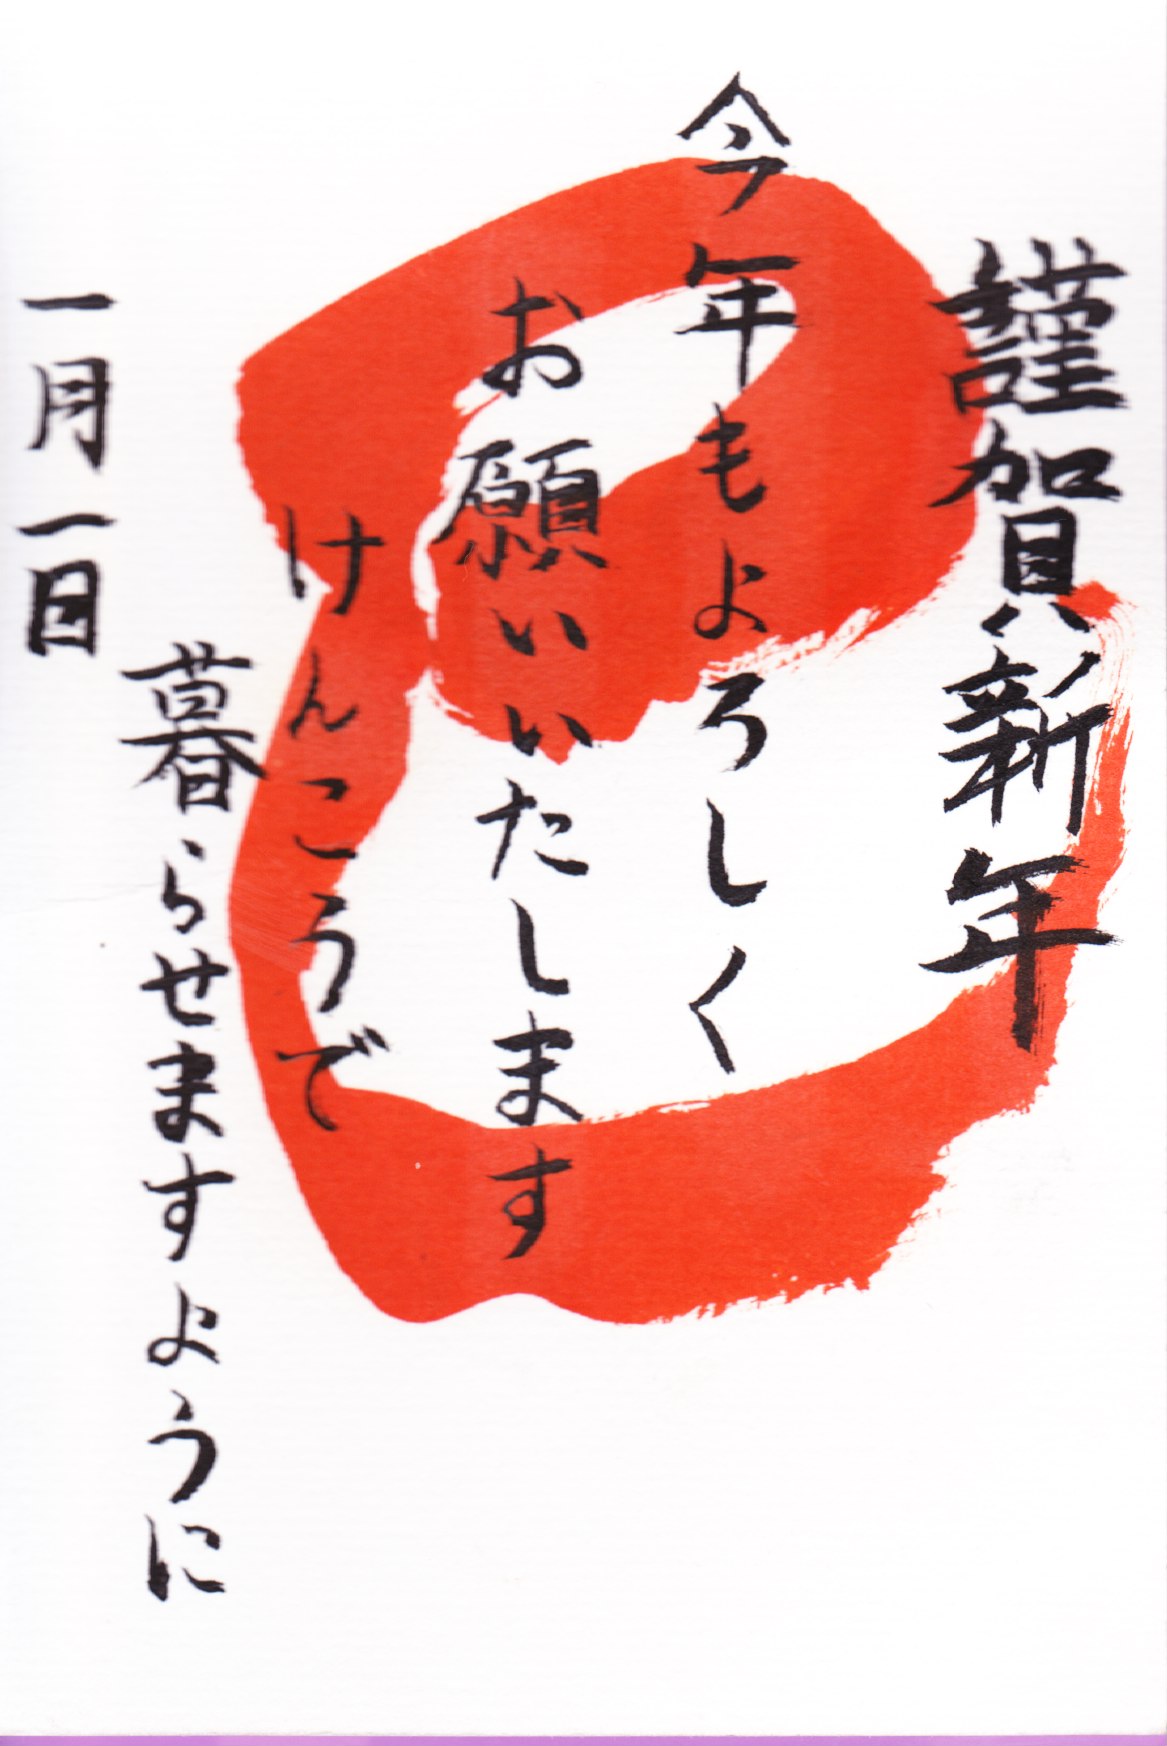 謹賀新年
今年もよろしく
お願いいたします
けんこうで
暮らせますように
一月一日